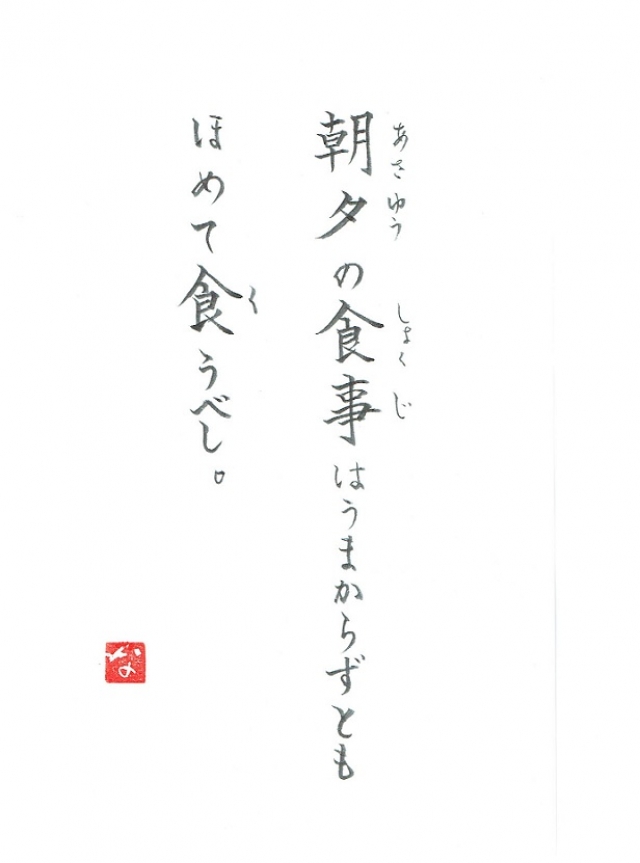 朝夕の食事はうまからずとも
あさゆう しょくじ
ほめて食うべし。
く
な